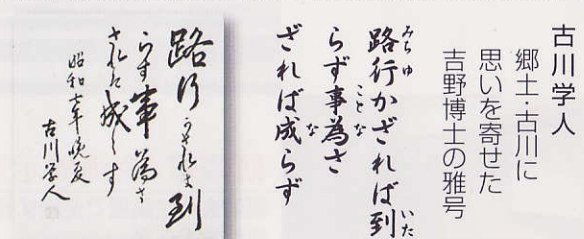 古川学人
郷土・古川に
思いを寄せた
吉野博士の雅号
みちゆ いた
路行かざれば到
ことな
らず事為さ
な
ざれば成らず
路行かされは到
らす事為さ
されは成らす
昭和七年晩夏
古川学人